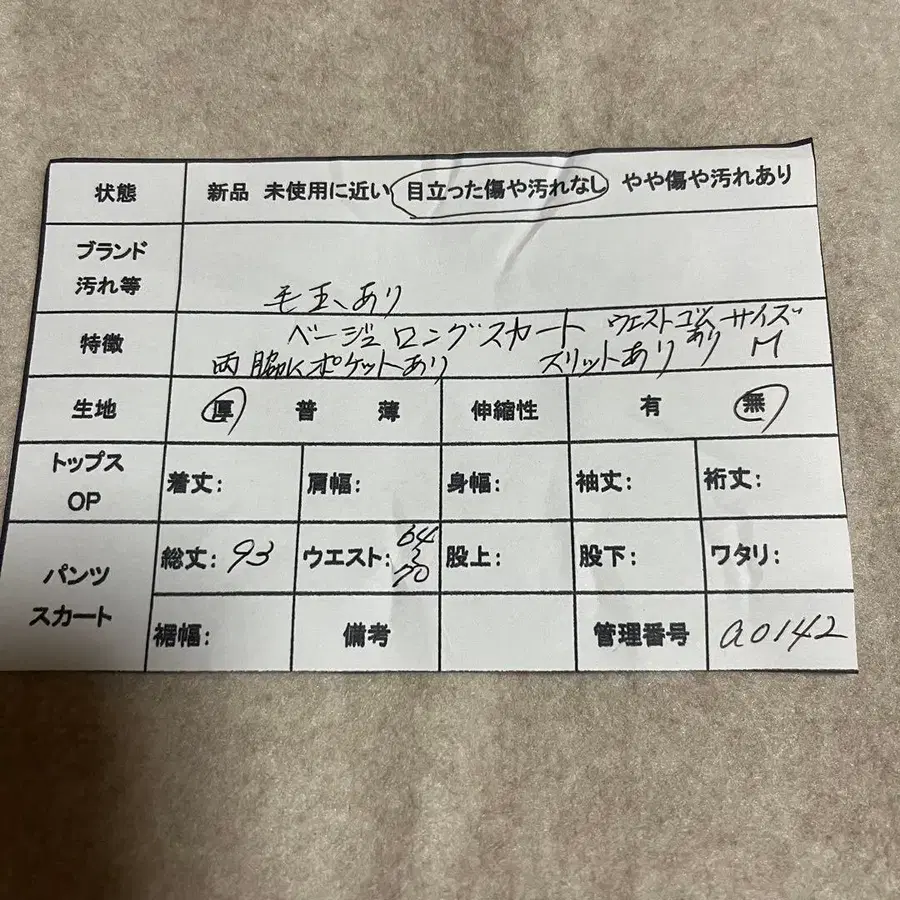 状態 新品 未使用に近い 目立った傷や汚れなし やや傷や汚れあり
ブランド
汚れ等 毛玉あり
特徴 ベージュロングスカート ウエストゴムあり サイズM
両脇にポケットあり スリットあり
生地 厚 普 薄 伸縮性 有 無
トップス
OP 着丈: 肩幅: 身幅: 袖丈: 裄丈:
パンツ
スカート 総丈: 93 ウエスト: 64〜70 股上: 股下: ワタリ:
裾幅: 備考 管理番号 a0142